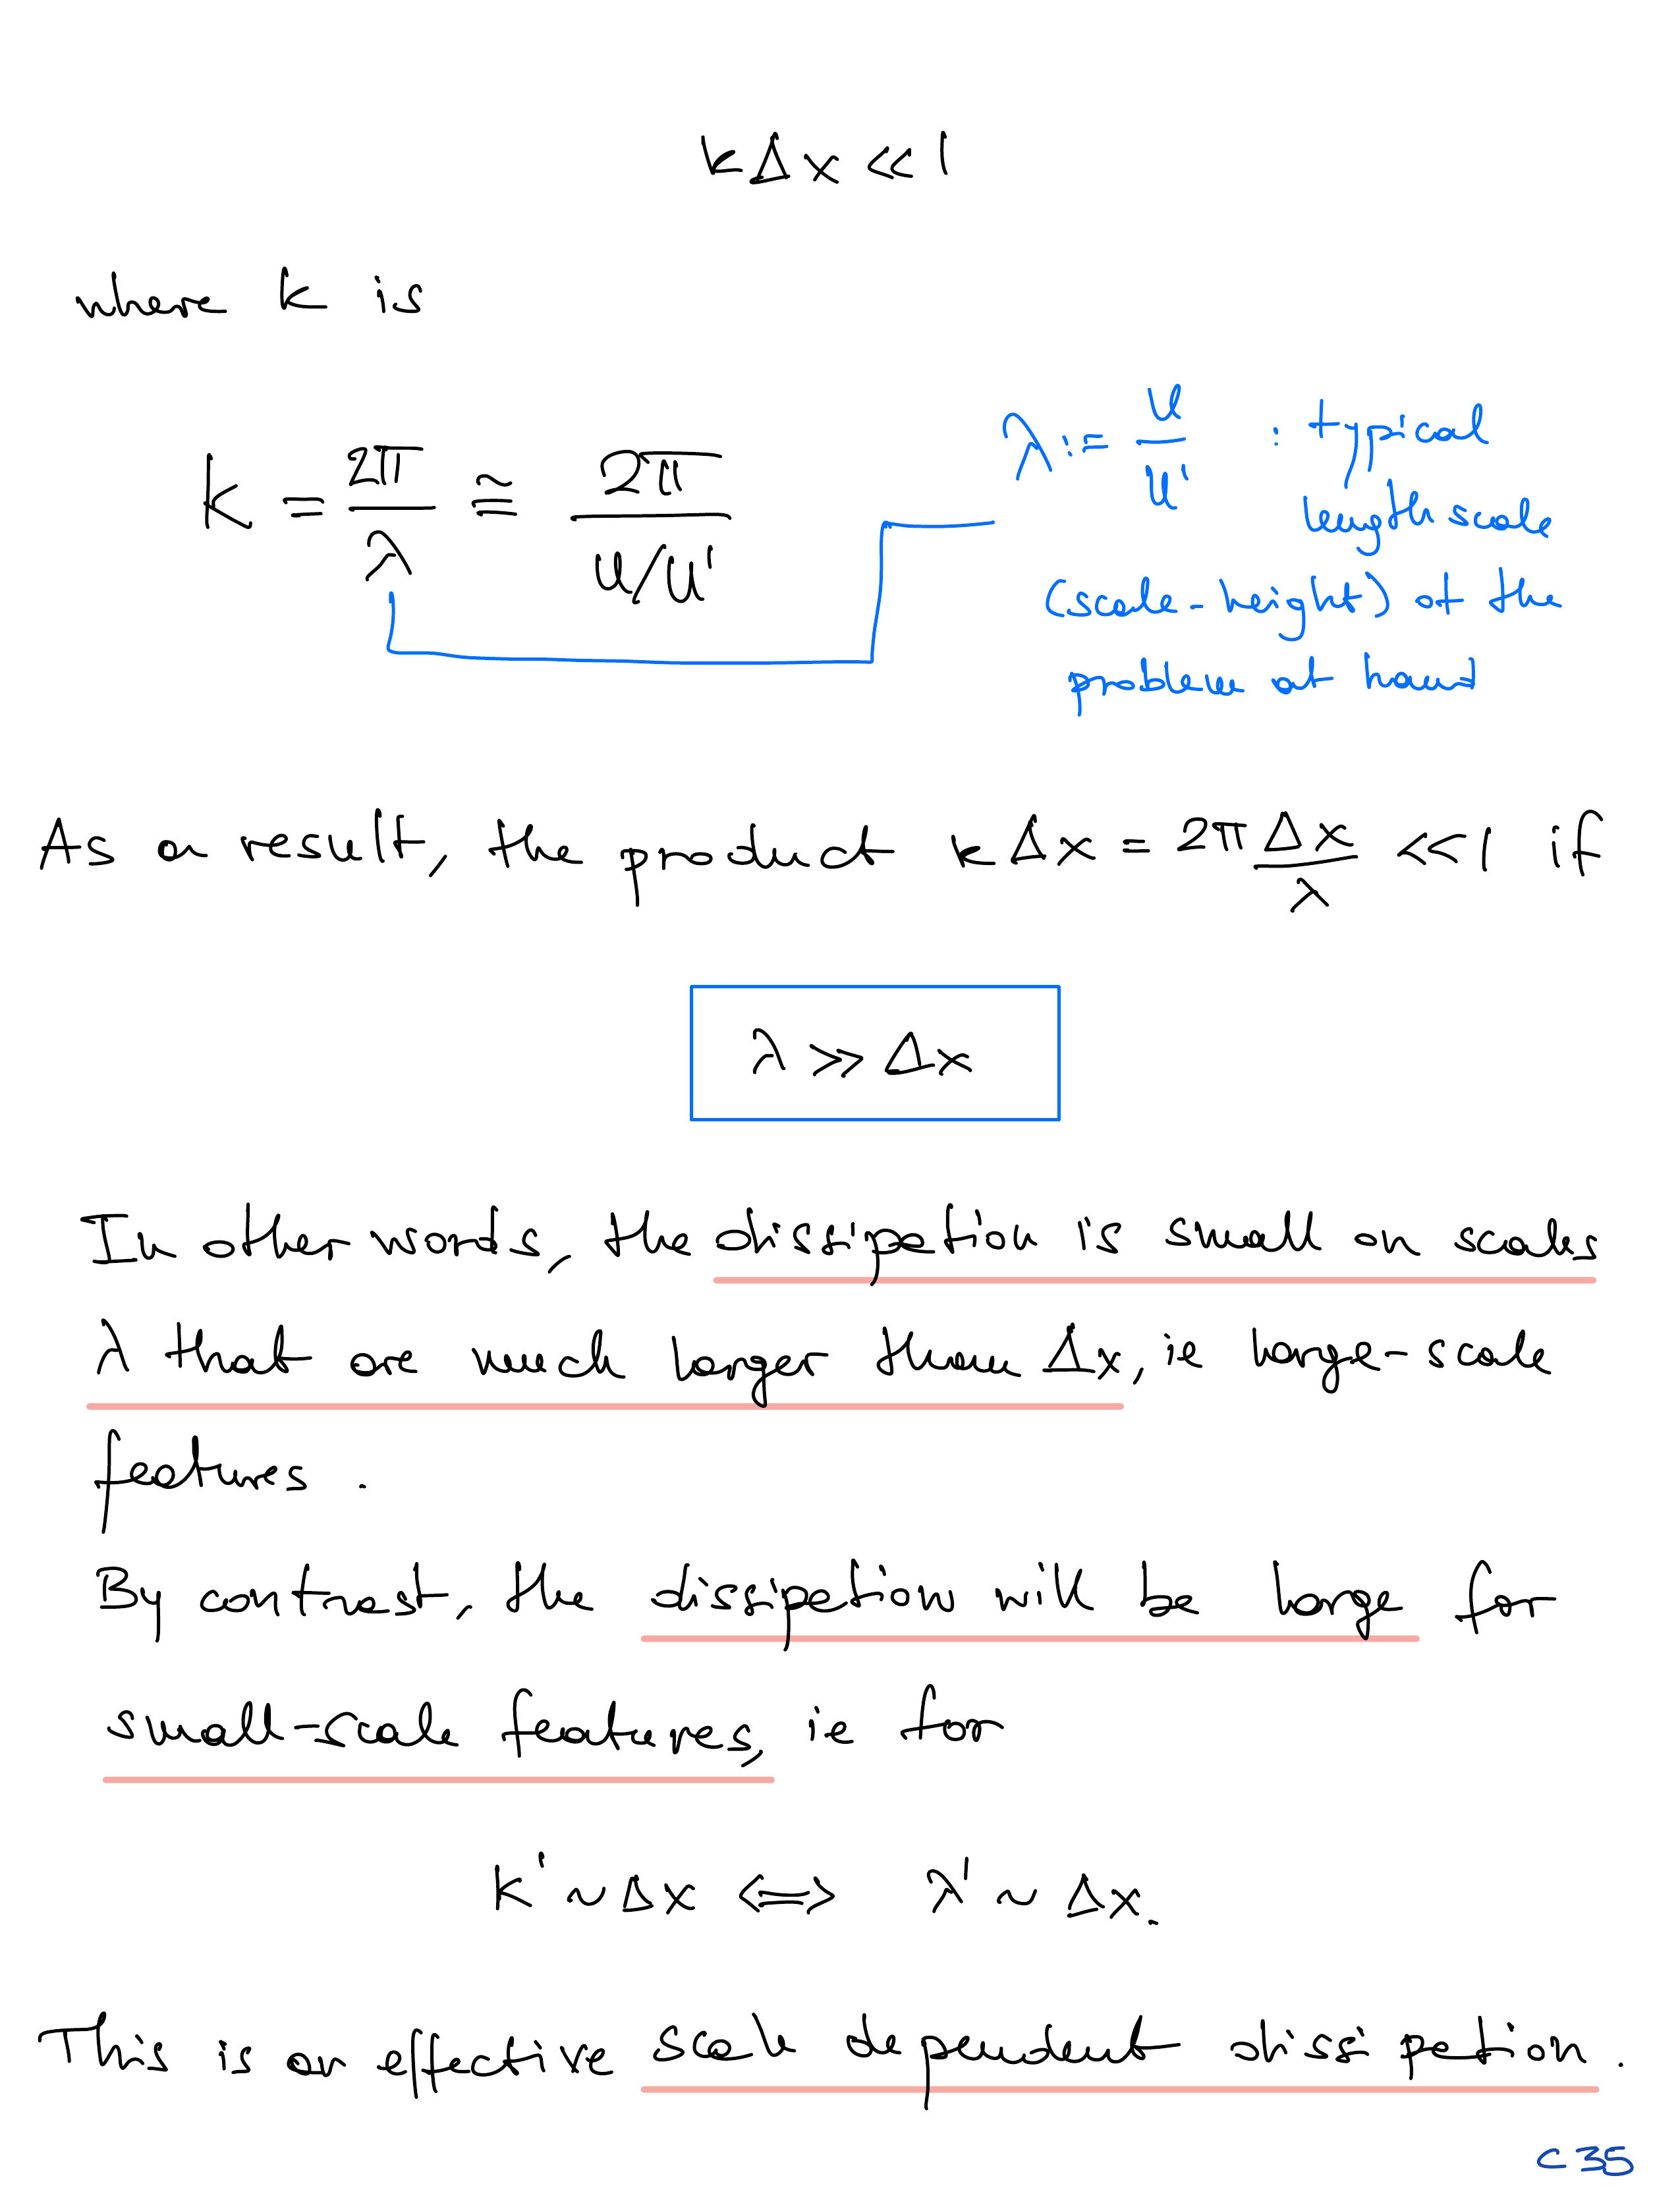 k Δx << 1
where k is
k = 2π/λ ≅ 2π/(u/u')
λ := u/u' : typical
length scale
(scale-height) of the
problem at hand
As a result, the product k Δx = 2π Δx/λ << 1 if
λ >> Δx
In other words, the dissipation is small on scales
λ that are much larger than Δx, ie large-scale
features.
By contrast, the dissipation will be large for
small-scale features, ie for
k' ~ Δx ⟺ λ' ~ Δx.
This is an effective scale dependent dissipation.
C35